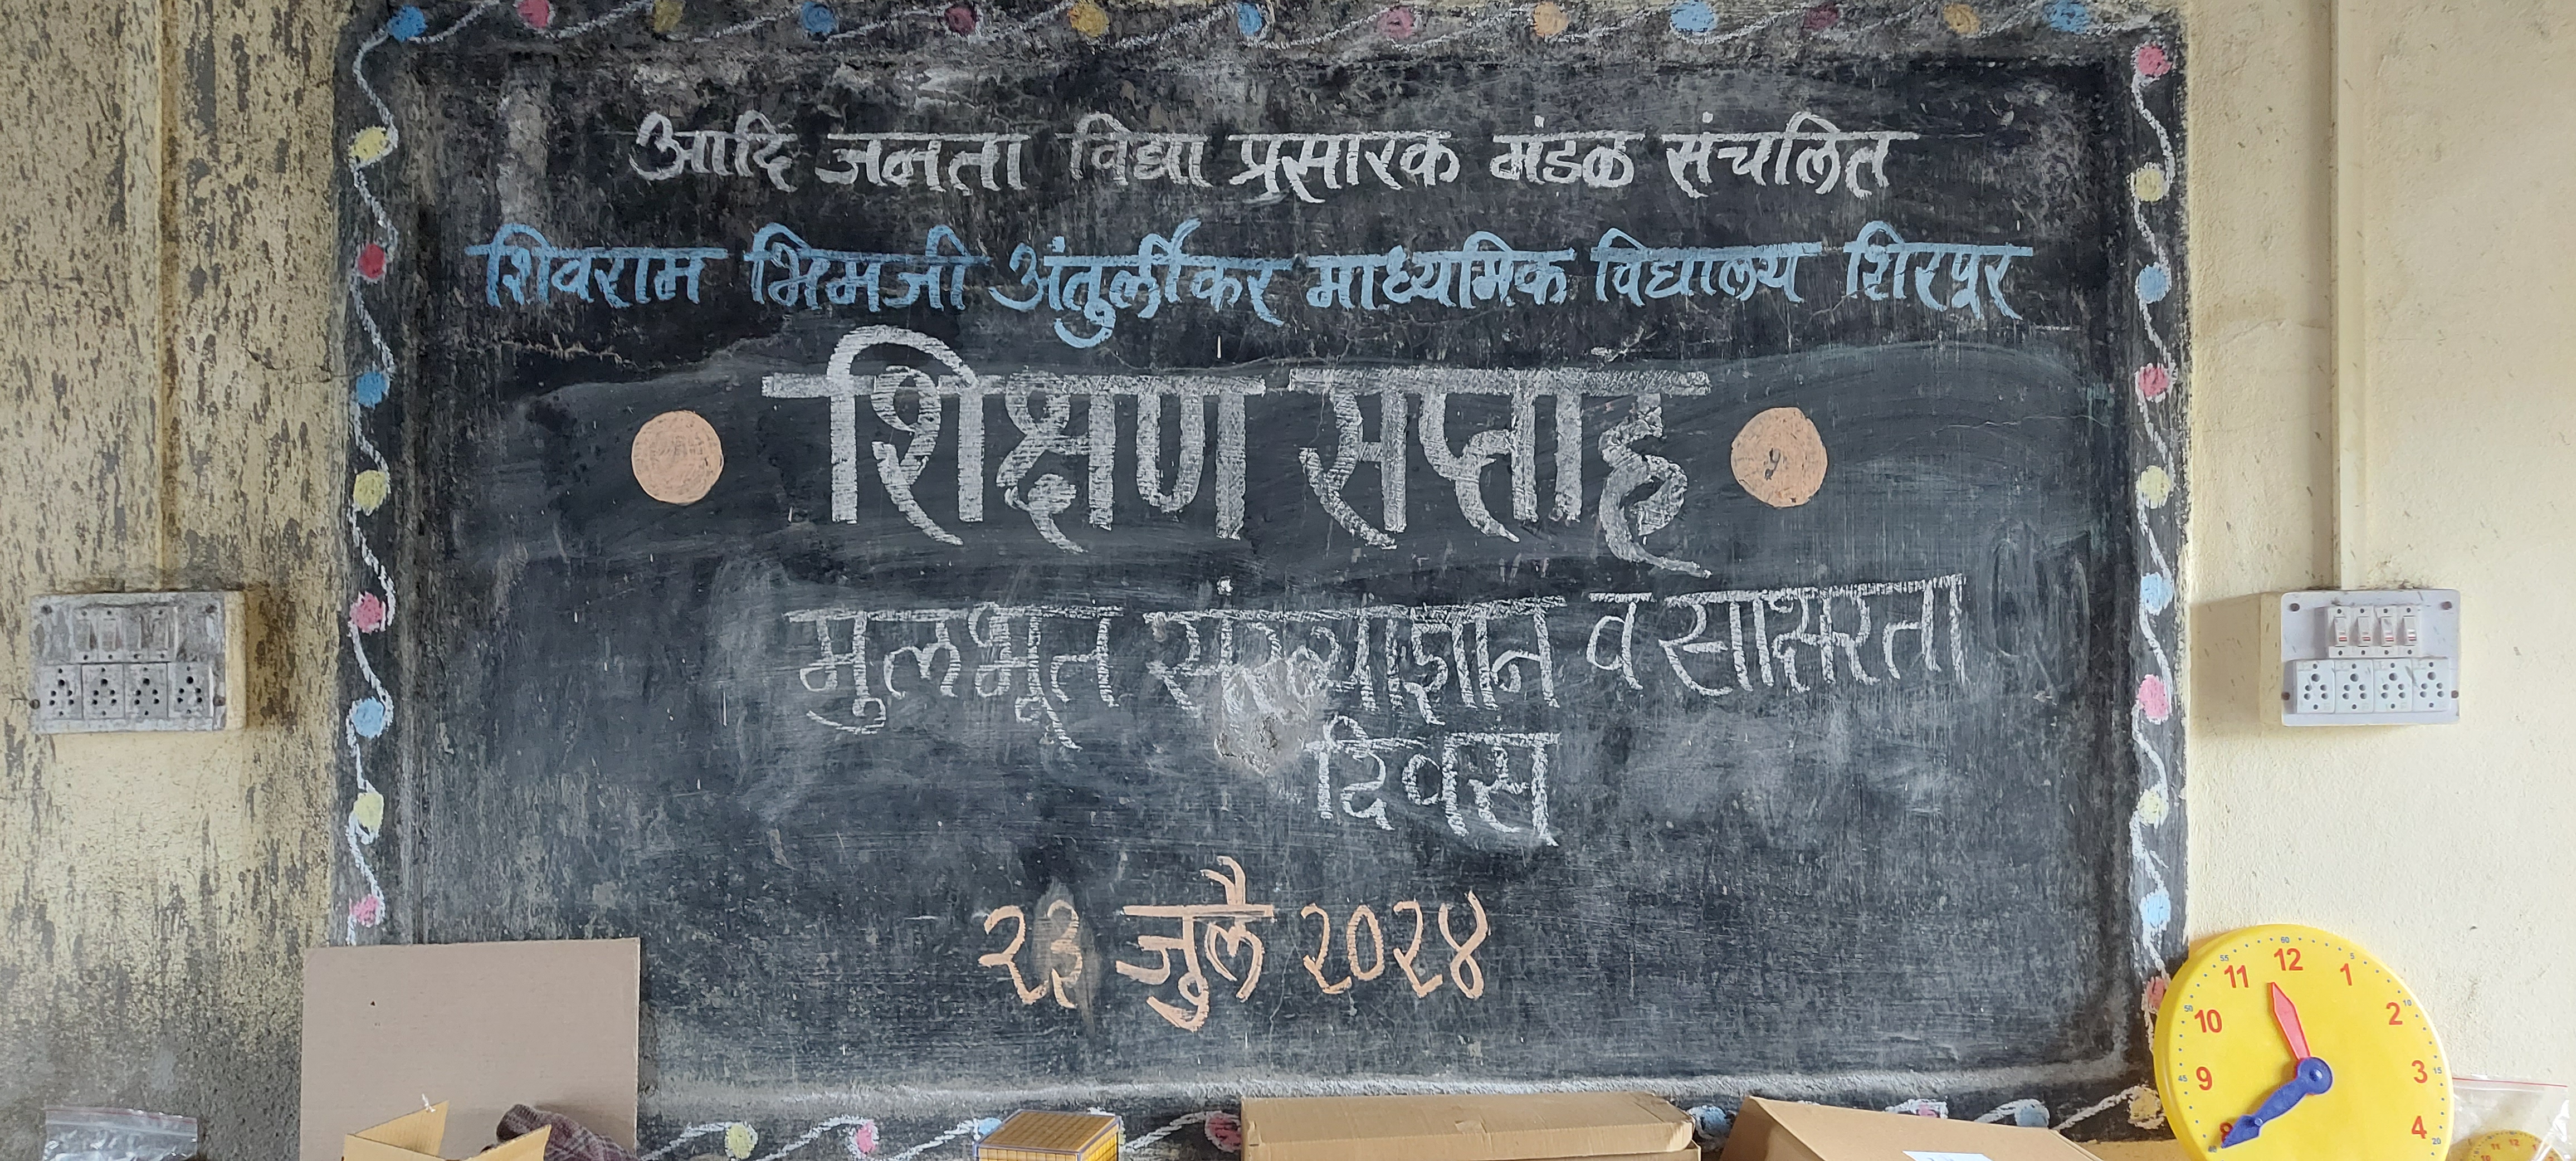 आदि जनता विद्या प्रसारक मंडळ संचलित
शिवराम भिमजी अंतुर्लीकर माध्यमिक विद्यालय शिरपूर
शिक्षण सप्ताह
मुलभूत संख्याज्ञान व साक्षरता
दिवस
२३ जुलै २०२४
60
55 12 5
11 1
50 10 2 10
45 9 3 15
8 4 20